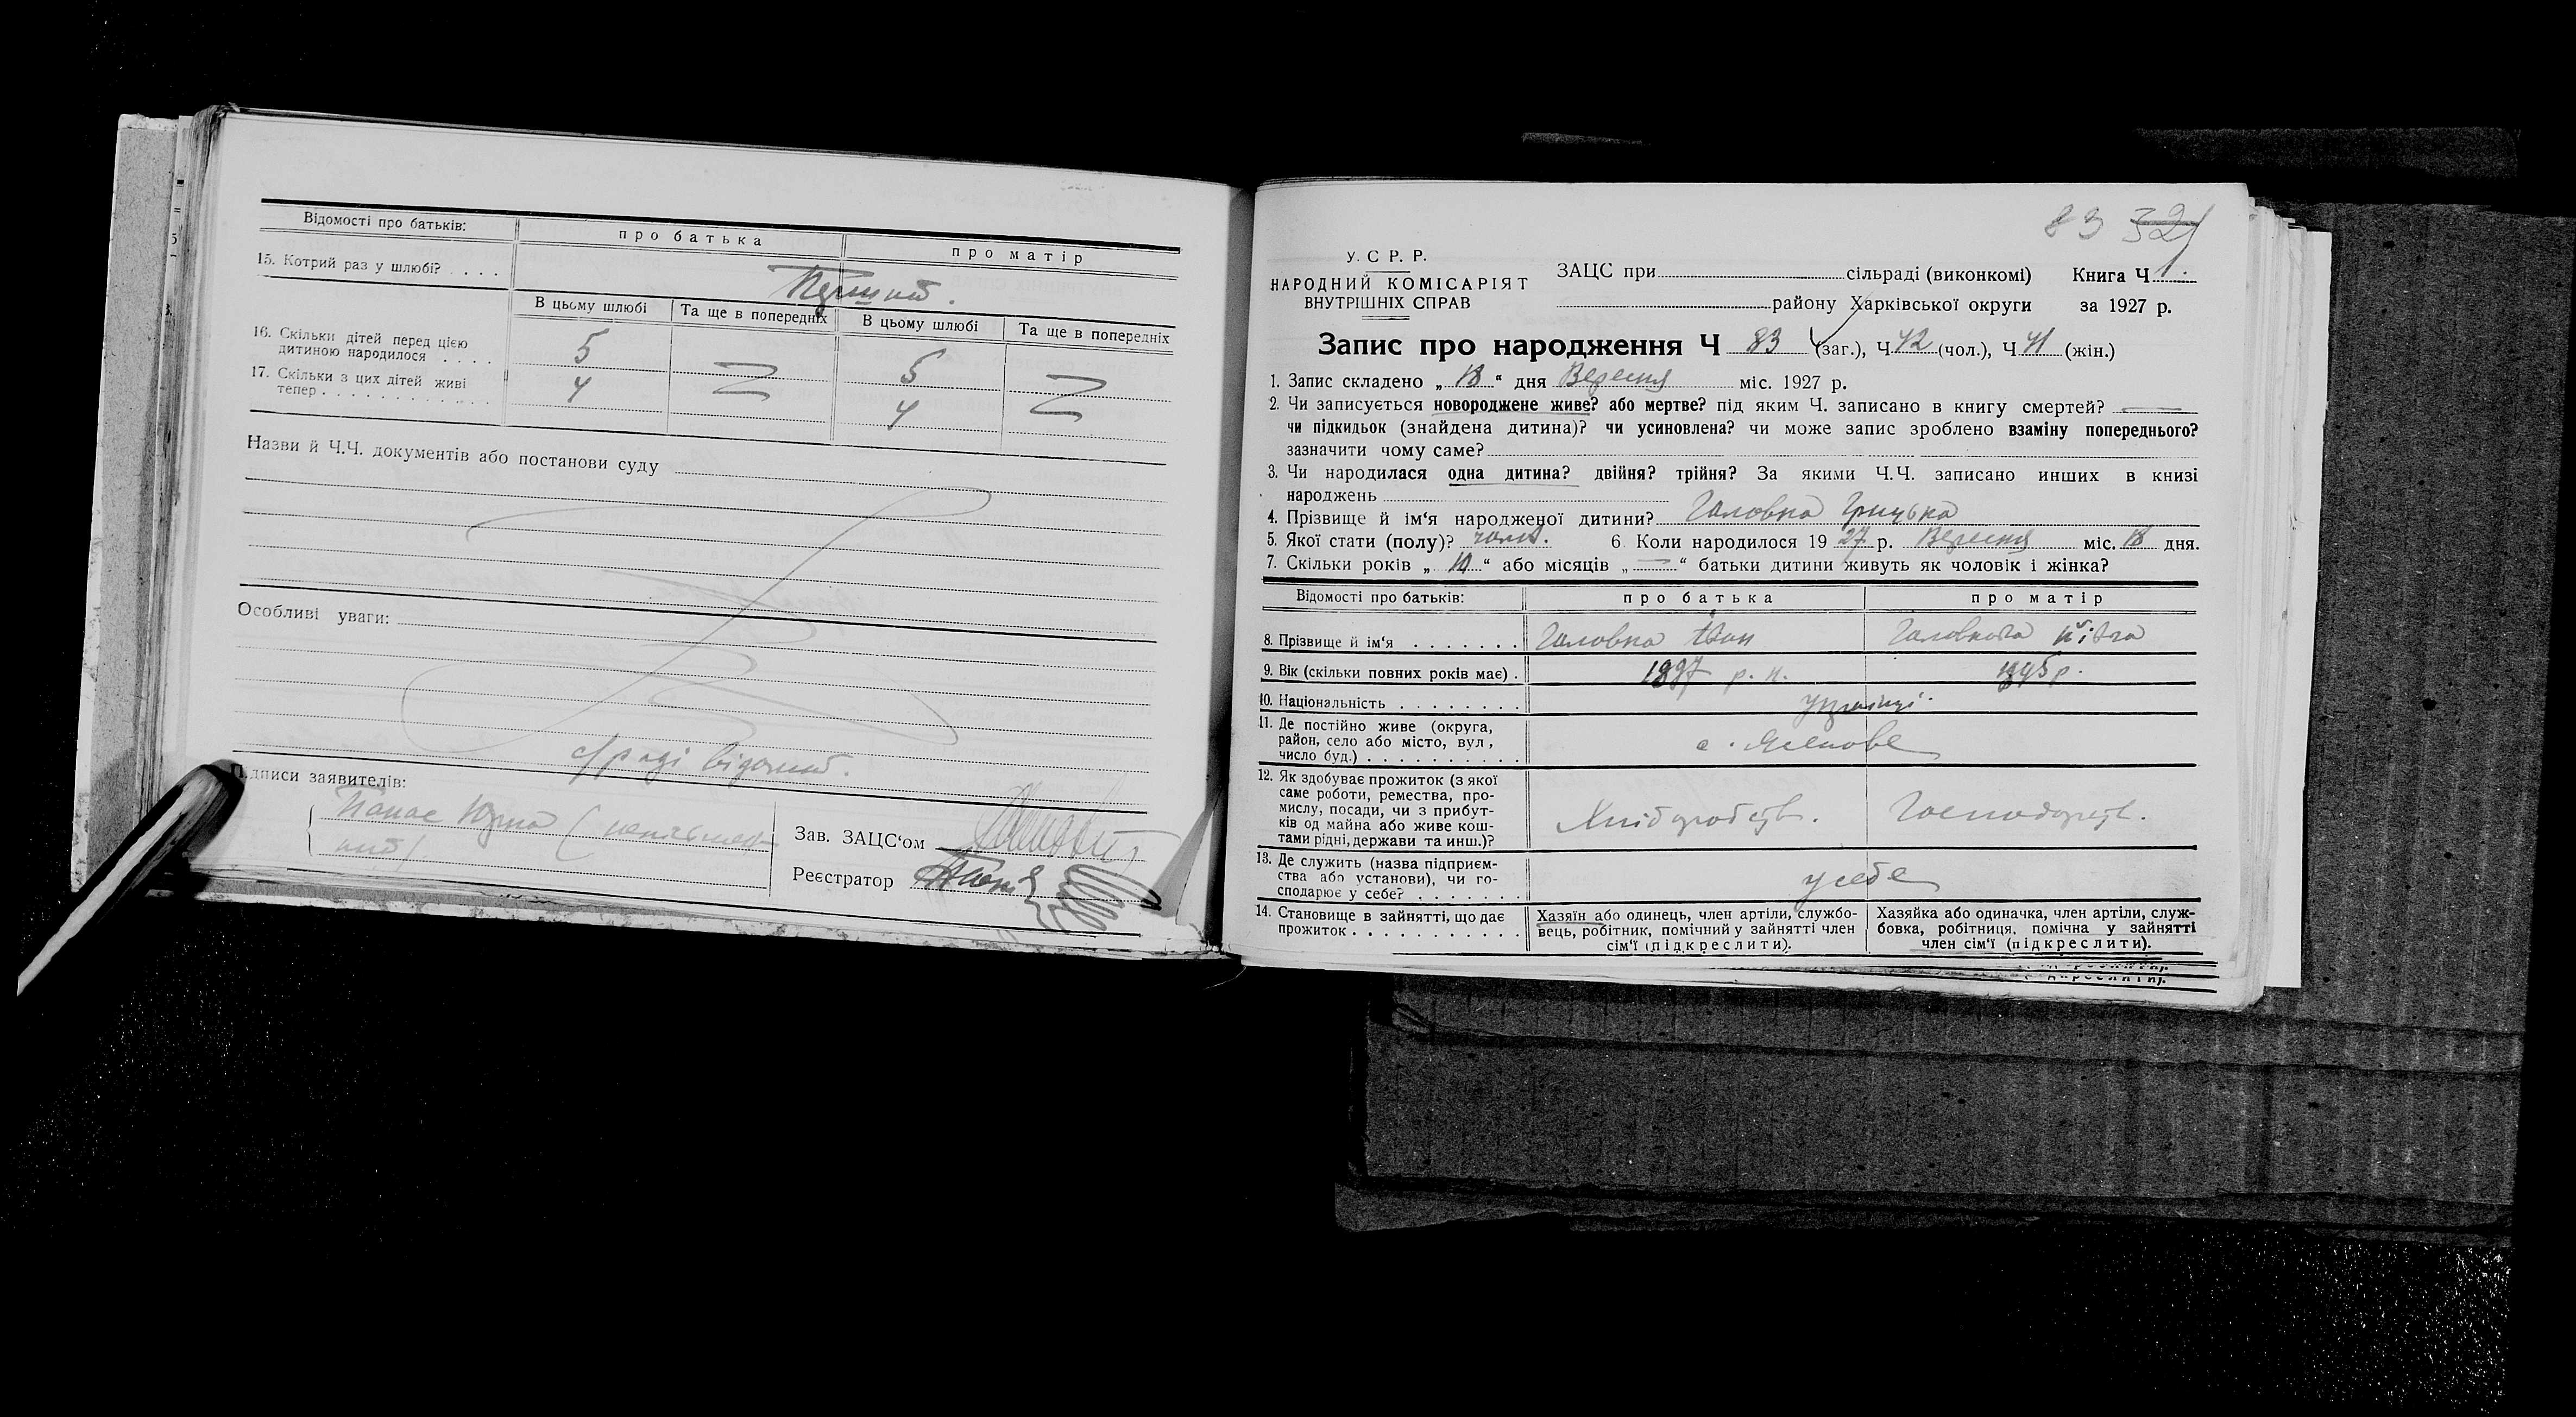 Відомості про батьків: про батька про матір
15. Котрий раз у шлюбі? . . . .
Перший.
В цьому шлюбі Та ще в попередніх В цьому шлюбі Та ще в попередніх
16. Скільки дітей перед цією
дитиною народилося . . . . 5 5
17. Скільки з цих дітей живі
тепер . . . . . . . . . . . . 4 4
Назви й Ч.Ч. документів або постанови суду
Особливі уваги:
с/раді відомий.
Підписи заявителів:
Панас Юрма (неписьмен-
ний)
Зав. ЗАЦС‘ом
Реєстратор
83 321
У. С Р. Р.
НАРОДНИЙ КОМІСАРІЯТ
ВНУТРІШНІХ СПРАВ
ЗАЦС при сільраді (виконкомі) Книга Ч 1.
району Харківської округи за 1927 р.
Запис про народження Ч 83 (заг.), Ч 42 (чол.), Ч 41 (жін.)
1. Запис складено „ 18 “ дня Вересня міс. 1927 р.
2. Чи записується новороджене живе? або мертве? під яким Ч. записано в книгу смертей? —
чи підкидьок (знайдена дитина)? чи усиновлена? чи може запис зроблено взаміну попереднього?
зазначити чому саме?
3. Чи народилася одна дитина? двійня? трійня? За якими Ч.Ч. записано инших в книзі
народжень
4. Прізвище й ім‘я народженої дитини? Головка Грицько
5. Якої стати (полу)? чолов. 6. Коли народилося 19 27 р. Вересня міс. 18 дня.
7. Скільки років „ 10 “ або місяців „ — “ батьки дитини живуть як чоловік і жінка?
Відомості про батьків: про батька про матір
8. Прізвище й ім‘я . . . . . . . Головка Іван Головкова
9. Вік (скільки повних років має) . 1897 р. н. 1895 р.
10. Національність . . . . . . . . українці.
11. Де постійно живе (округа,
район, село або місто, вул,
число буд.) . . . . . . . . . . с. Ясенове
12. Як здобуває прожиток (з якої
саме роботи, ремества, про-
мислу, посади, чи з прибут-
ків од майна або живе кош-
тами рідні, держави та инш.)? Хліборобств. Господарств.
13. Де служить (назва підприєм-
ства або установи), чи го-
сподарює у себе? . . . . . . . у себе
14. Становище в зайнятті, що дає
прожиток . . . . . . . . . . .
Хазяїн або одинець, член артіли, службо-
вець, робітник, помічний у зайнятті член
сім‘ї (підкреслити).
Хазяйка або одиначка, член артіли, служ-
бовка, робітниця, помічна у зайнятті
член сім‘ї (підкреслити).